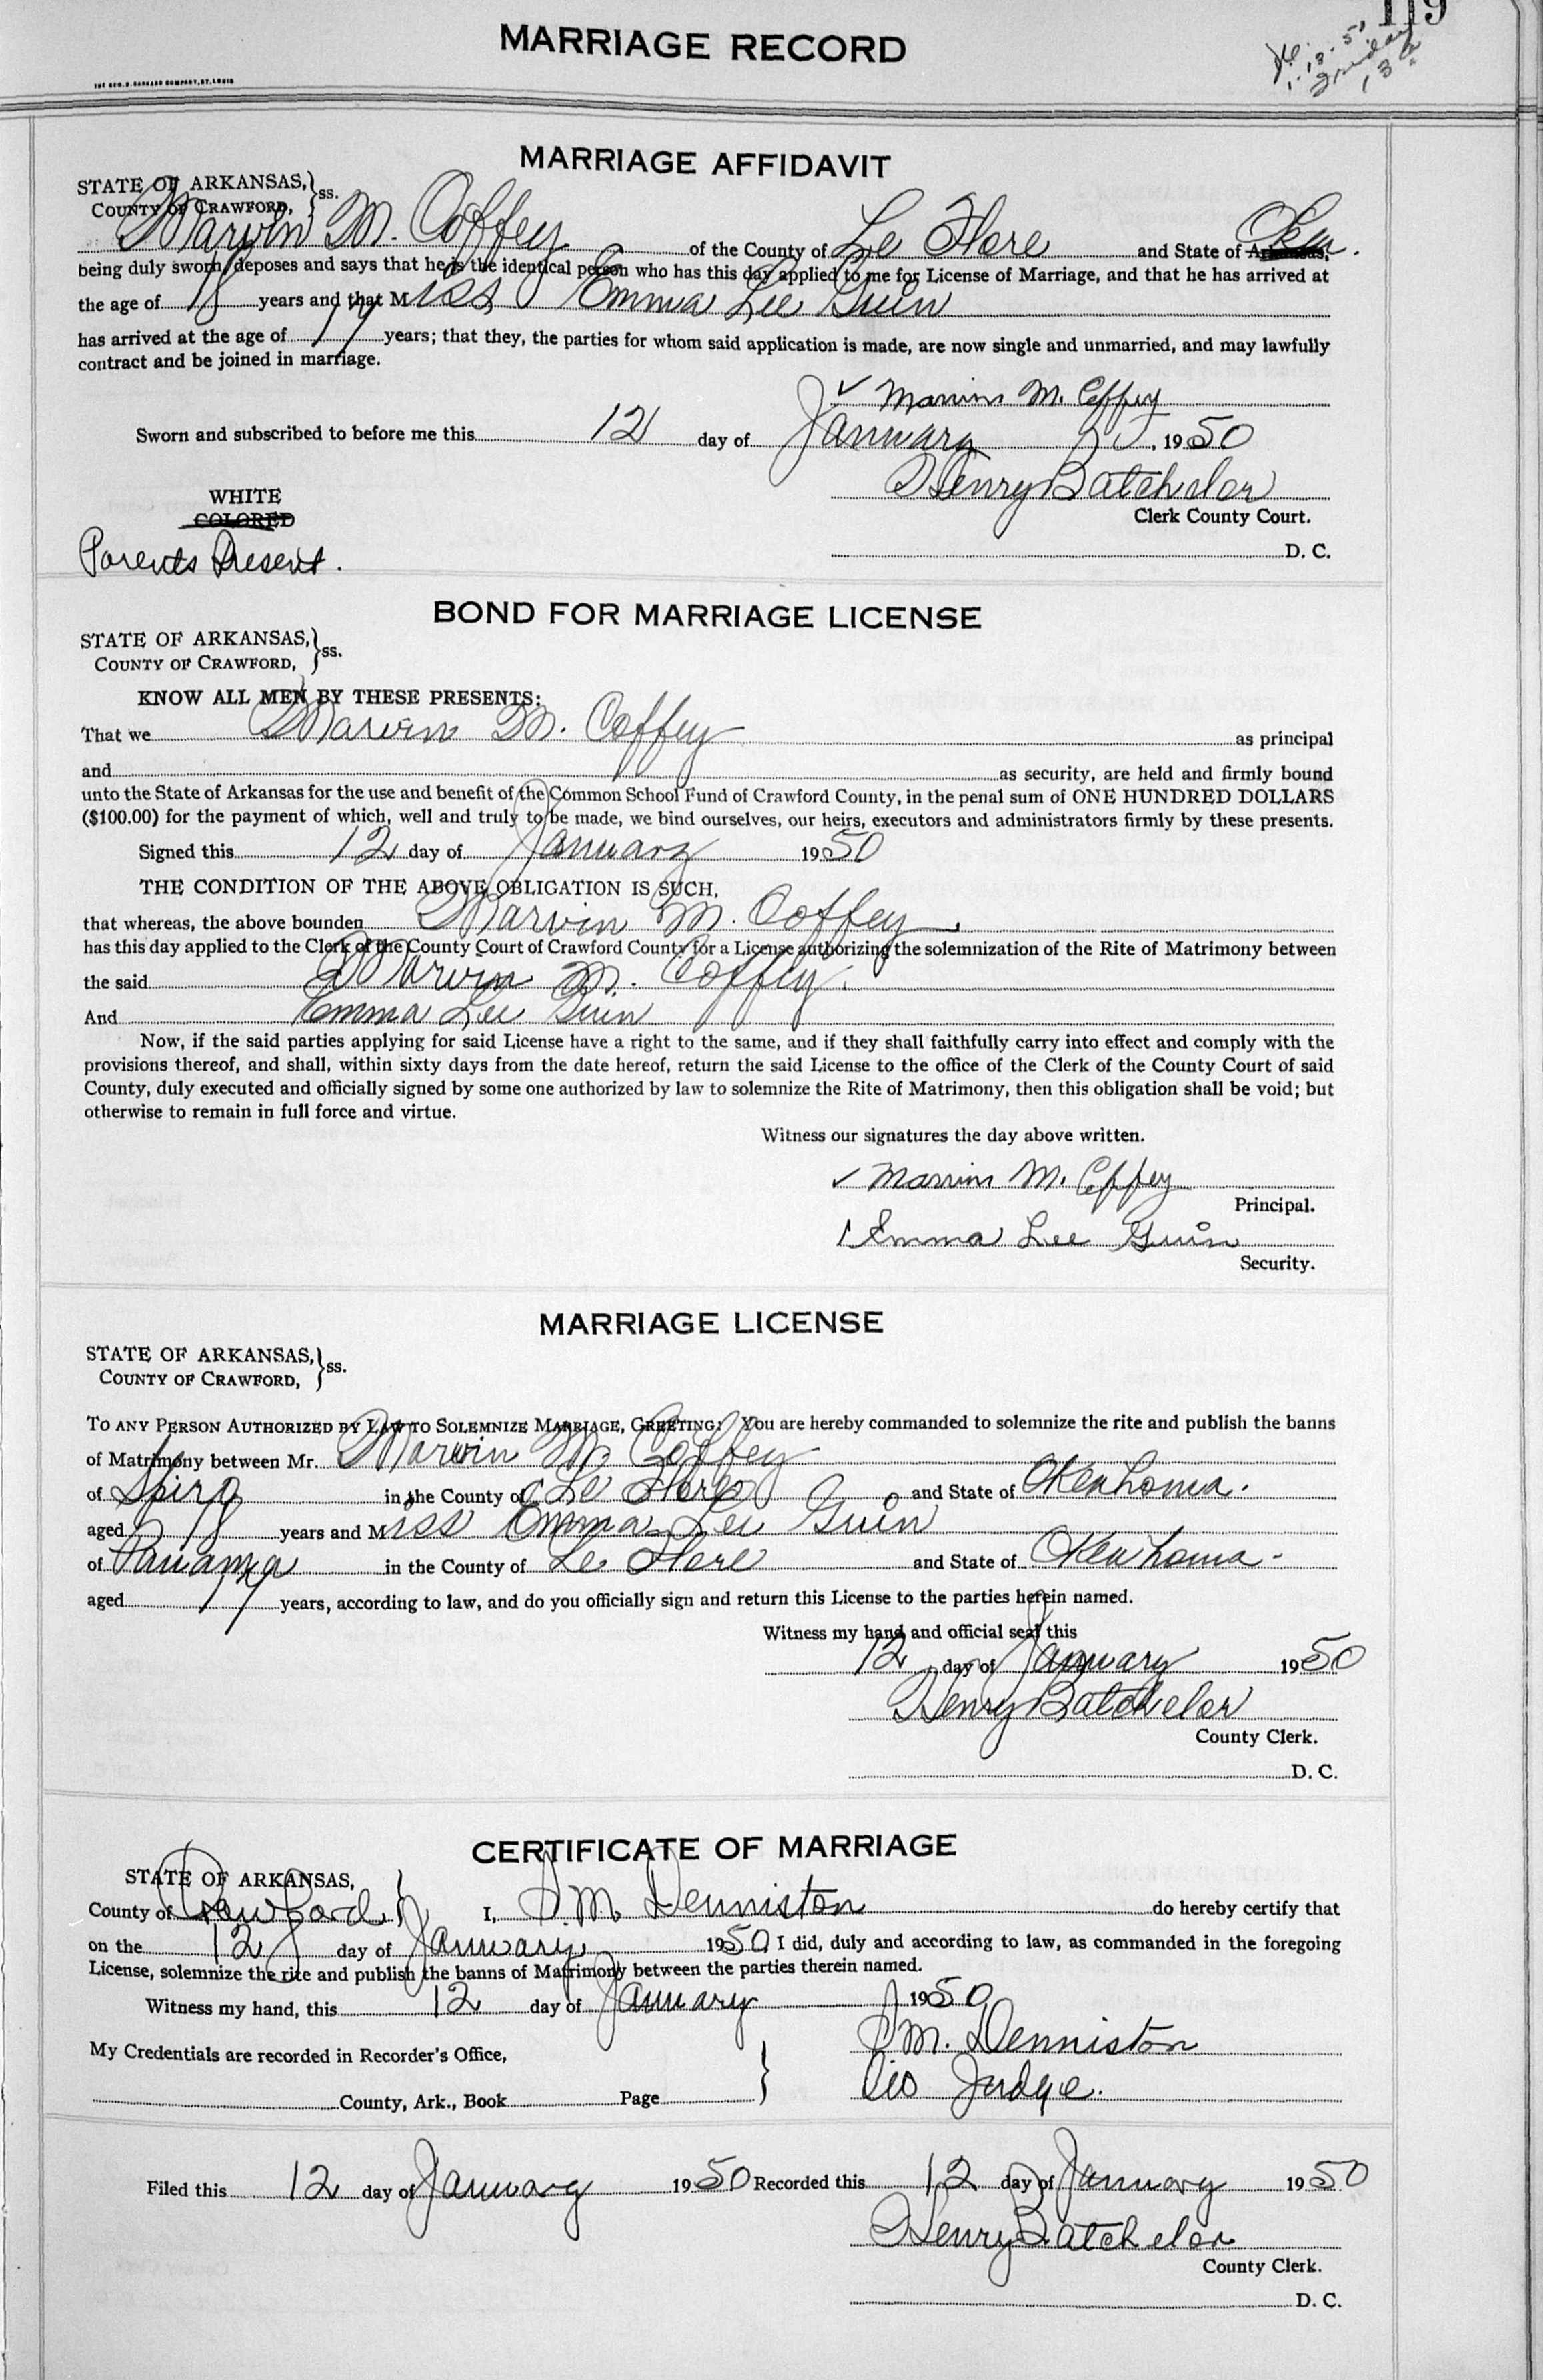 119
MARRIAGE RECORD
1-13-50
Friday
13th
THE GEO. D. BARNARD COMPANY, ST. LOUIS
MARRIAGE AFFIDAVIT
STATE OF ARKANSAS, } ss.
COUNTY OF CRAWFORD,
Marvin M. Coffey of the County of Le Flore and State of Arkansas, Okla.
being duly sworn, deposes and says that he is the identical person who has this day applied to me for License of Marriage, and that he has arrived at
the age of 18 years and that Miss Emma Lee Guin
has arrived at the age of 17 years; that they, the parties for whom said application is made, are now single and unmarried, and may lawfully
contract and be joined in marriage.
✓ Marvin M. Coffey
Sworn and subscribed to before me this 12 day of January, 1950
Henry Batchelor
Clerk County Court.
D. C.
WHITE
COLORED
Parents Present.
BOND FOR MARRIAGE LICENSE
STATE OF ARKANSAS, } ss.
COUNTY OF CRAWFORD,
KNOW ALL MEN BY THESE PRESENTS:
That we Marvin M. Coffey as principal
and as security, are held and firmly bound
unto the State of Arkansas for the use and benefit of the Common School Fund of Crawford County, in the penal sum of ONE HUNDRED DOLLARS
($100.00) for the payment of which, well and truly to be made, we bind ourselves, our heirs, executors and administrators firmly by these presents.
Signed this 12 day of January 1950
THE CONDITION OF THE ABOVE OBLIGATION IS SUCH,
that whereas, the above bounden Marvin M. Coffey,
has this day applied to the Clerk of the County Court of Crawford County for a License authorizing the solemnization of the Rite of Matrimony between
the said Marvin M. Coffey.
And Emma Lee Guin
Now, if the said parties applying for said License have a right to the same, and if they shall faithfully carry into effect and comply with the
provisions thereof, and shall, within sixty days from the date hereof, return the said License to the office of the Clerk of the County Court of said
County, duly executed and officially signed by some one authorized by law to solemnize the Rite of Matrimony, then this obligation shall be void; but
otherwise to remain in full force and virtue.
Witness our signatures the day above written.
✓ Marvin M. Coffey
Principal.
Emma Lee Guin
Security.
MARRIAGE LICENSE
STATE OF ARKANSAS, } ss.
COUNTY OF CRAWFORD,
TO ANY PERSON AUTHORIZED BY LAW TO SOLEMNIZE MARRIAGE, GREETING: You are hereby commanded to solemnize the rite and publish the banns
of Matrimony between Mr. Marvin M. Coffey
of Spiro in the County of Le Flore and State of Oklahoma.
aged 18 years and Miss Emma Lee Guin
of Panama in the County of Le Flore and State of Oklahoma.
aged 17 years, according to law, and do you officially sign and return this License to the parties herein named.
Witness my hand and official seal this
12 day of January 1950
Henry Batchelor
County Clerk.
D. C.
CERTIFICATE OF MARRIAGE
STATE OF ARKANSAS, }
County of Crawford I, J. M. Denniston do hereby certify that
on the 12 day of January, 1950, I did, duly and according to law, as commanded in the foregoing
License, solemnize the rite and publish the banns of Matrimony between the parties therein named.
Witness my hand, this 12 day of January 1950
J. M. Denniston
My Credentials are recorded in Recorder's Office, }
Judge.
County, Ark., Book Page
Filed this 12 day of January 1950 Recorded this 12 day of January 1950
Henry Batchelor
County Clerk.
D. C.